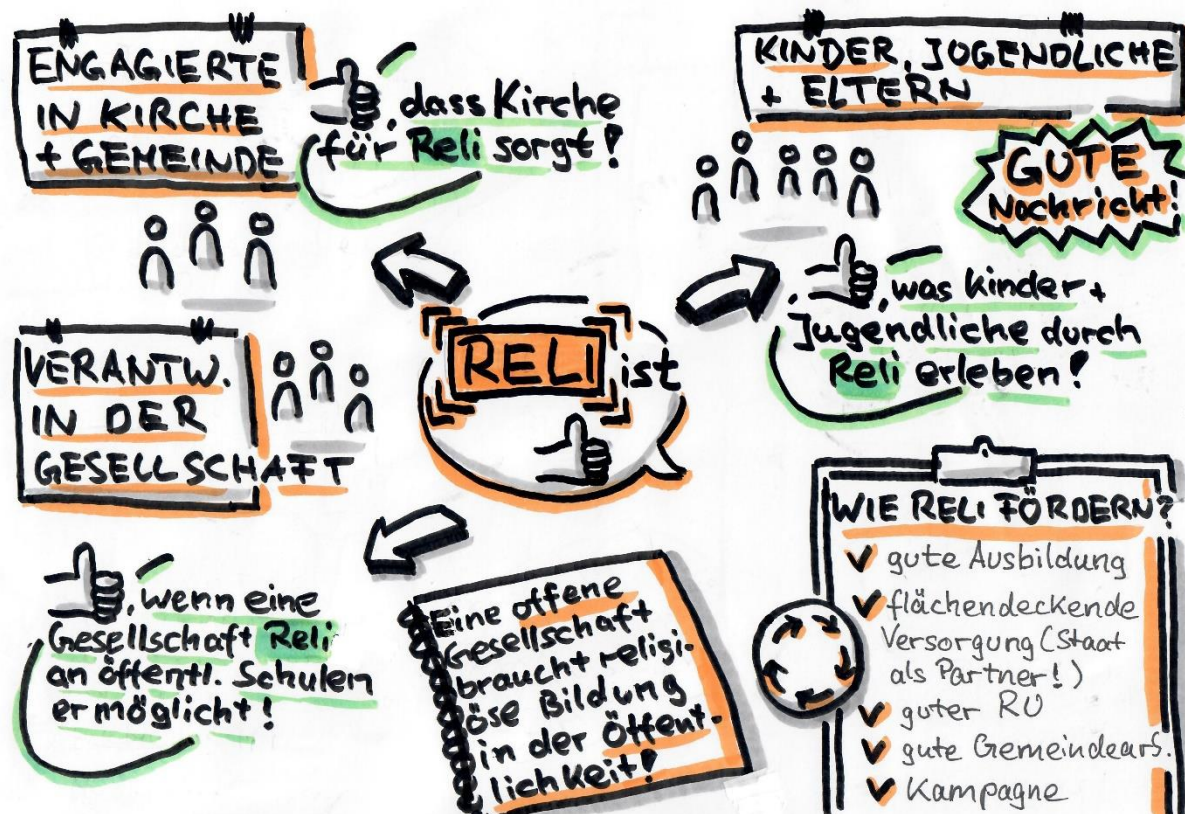 ENGAGIERTE
IN KIRCHE
+ GEMEINDE
, dass Kirche
für Reli sorgt!
KINDER, JUGENDLICHE
+ ELTERN
GUTE
Nachricht!
, was Kinder +
Jugendliche durch
Reli erleben!
RELI ist
VERANTW.
IN DER
GESELLSCHAFT
, wenn eine
Gesellschaft Reli
an öffentl. Schulen
ermöglicht!
Eine offene
Gesellschaft
braucht religi-
öse Bildung
in der Öffent-
lichkeit!
WIE RELI FÖRDERN?
gute Ausbildung
flächendeckende
Versorgung (Staat
als Partner!)
guter RU
gute Gemeindearb.
Kampagne